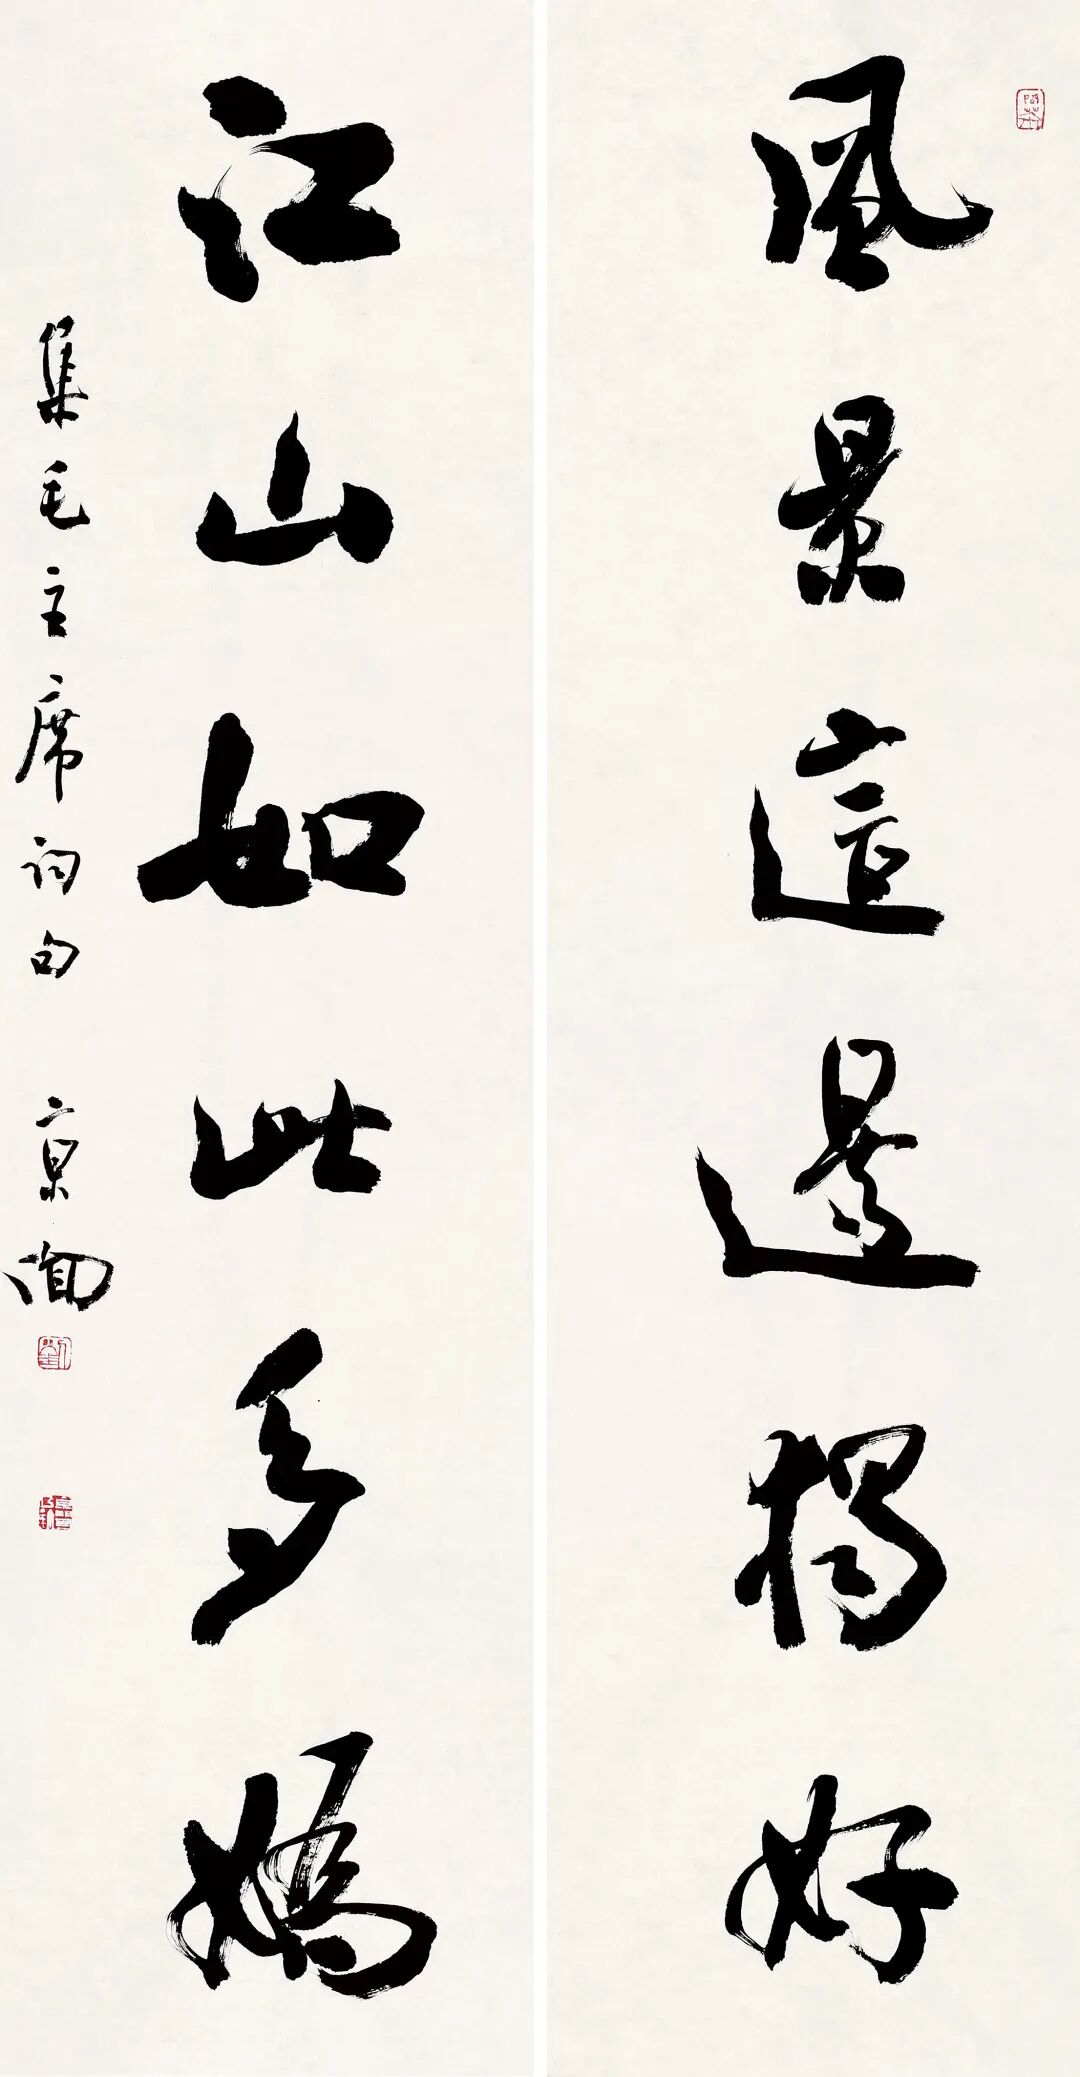 風景這邊獨好
江山如此多嬌
集毛主席詞句